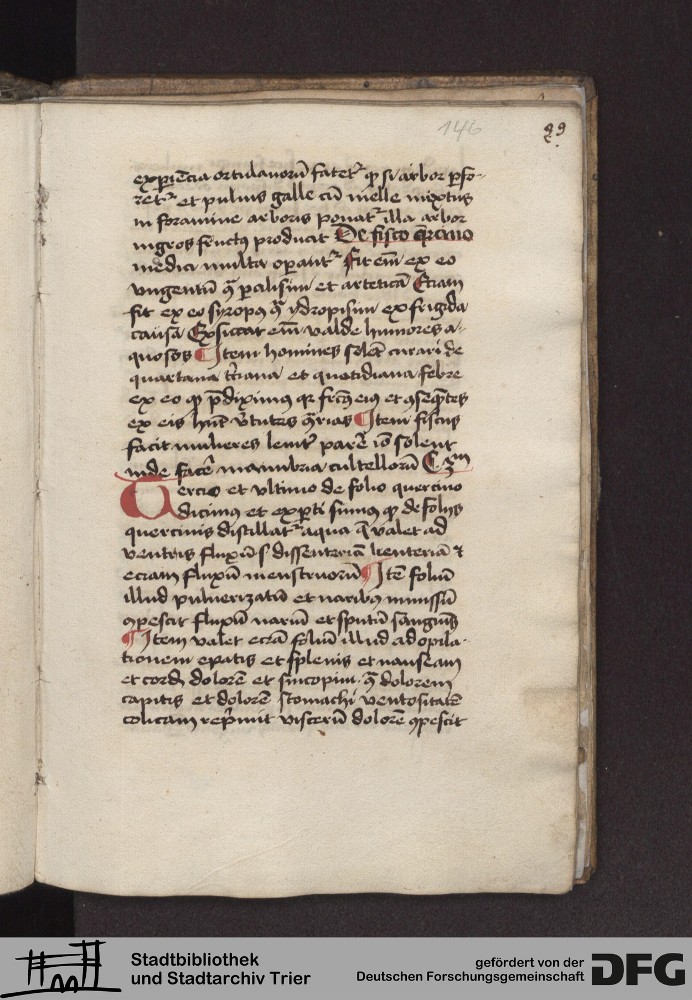 146
99
experiẽcia ortulanorũ fatetᷣ qꝫ si arbor ꝑfo-
retᷣ et puluis galle cũ melle mixtus
in foramine arboris ponatᷣ illa arbor
nigros fructꝰ producat De fisco q̃rcino
medici multa operantᷣ Fit em̃ ex eo
vngentũ ꝯ̃ paralisim et arteticã Etiam
fit ex eo syropꝰ ꝯ̃ ydropisim ex frigida
causa Exsiccat em̃ valde humores a-
quosos ¶ Item homines solẽt curari de
quartana t̃ciana et quotidiana febre
ex eo qꝫ p̃diximus
ex eis hñt v̾tutes ꝯ̃rias ¶ Item fiscus
facit mulieres leuit̾ parẽ iõ solent
inde facẽ manubria cultellorũ
Tercio et vltimo de folio quercino
dicimꝰ et exꝑti sumꝰ qꝫ de folijs
quercinis distillatᷣ aqua q̃ valet ad
ventris fluxũ s. dissenteriã lienteriã ⁊
eciam fluxũ menstruorũ ¶ Itẽ foliũ
illud puluerizatũ et naribꝰ inmissũ
ꝯpescit fluxũ nariũ et sputũ sanguĩs
¶ Item valet eciã foliũ illud ad opila-
tionem epatis et splenis et nauseam
et cordꝭ dolorẽ et sincopim. ꝯ̃ dolorem
capitis et dolorẽ stomachi ventositatẽ
colicam rep̾mit viscerũ dolorẽ ꝯpescit
Stadtbibliothek
und Stadtarchiv Trier
gefördert von der
Deutschen Forschungsgemeinschaft
DFG